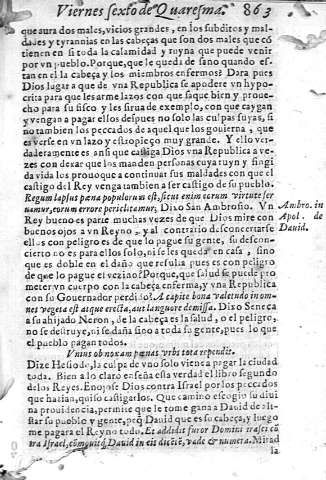 Viernes sexto de Quaresma. 863
que aura dos males, vicios grandes, en los subditos y mal-
dades y tyrannias en las cabeças que son dos males que cõ
tienen en si toda la calamidad y ruyna que puede venir
por vn pueblo. Porque, que le queda de sano quando es-
tan en el la cabeça y los miembros enfermos? Dara pues
Dios lugar a que de vna Republica se apodere vn hypo-
crita para que les arme lazos con que saque bien y proue-
cho para su fisco y les sirua de exemplo, con que caygan
y vengan a pagar ellos despues no solo las culpas suyas, si
no tambien los peccados de aquel que los gouierna, que
es verse en vn lazo y estropieço muy grande. Y ello ver-
daderamente es ansi que castiga Dios vna Republica a ve-
zes con dexar que los manden personas cuya ruyn y fingi
da vida los prouoque a continuar sus maldades con que el
castigo del Rey venga tambien a ser castigo de su pueblo.
Regum lapsus pœna populorum est, sicut enim eorum virtute ser
uamur, eorum errore periclitamur, Dixo San Ambrosio. Vn
Rey bueno es parte muchas vezes de que Dios mire con
buenos ojos a vn Reyno, y al contrario desconcertarse
ellos con peligro es de que lo pague su gente, su descon-
cierto no es para ellos solo, ni se les queda en casa, sino
que es doble en el daño que resulta pues es con peligro
de que lo pague el vezino? Porque, que salud se puede pro-
meter vn cuerpo con la cabeça enferma, y vna Republica
con su Gouernador perdido? A capite bona valetudo in om-
nes vegeta est atque erecta, aut languore demissa. Dixo Seneca
a su ahijado Neron, de la cabeça es la salud, o el peligro,
no se destruye, ni se daña sino a toda su gente, pues lo que
el pueblo pagan todos.
Vnius ob noxam pœnas vrbs tota rependit.
Dixo Hesiodo, la culpa de vno solo viene a pagar la ciudad
toda. Bien a lo claro enseña esta verdad el libro segundo
de los Reyes. Enojose Dios contra Israel por los peccados
que hazian, quiso castigarlos. Que camino escogio su diui
na prouidencia, permite que le tome gana a Dauid de ali-
star su pueblo y gente, pεq̃ Dauid que es su cabeça, y luego
me pagara el Reyno todo. Et addidit furor Domini irasci cõ
tra Israel, cõmouitq; Dauid in eis dicẽtẽ, vade & numera. Mirad
la
Ambro. in
Apol. de
Dauid.